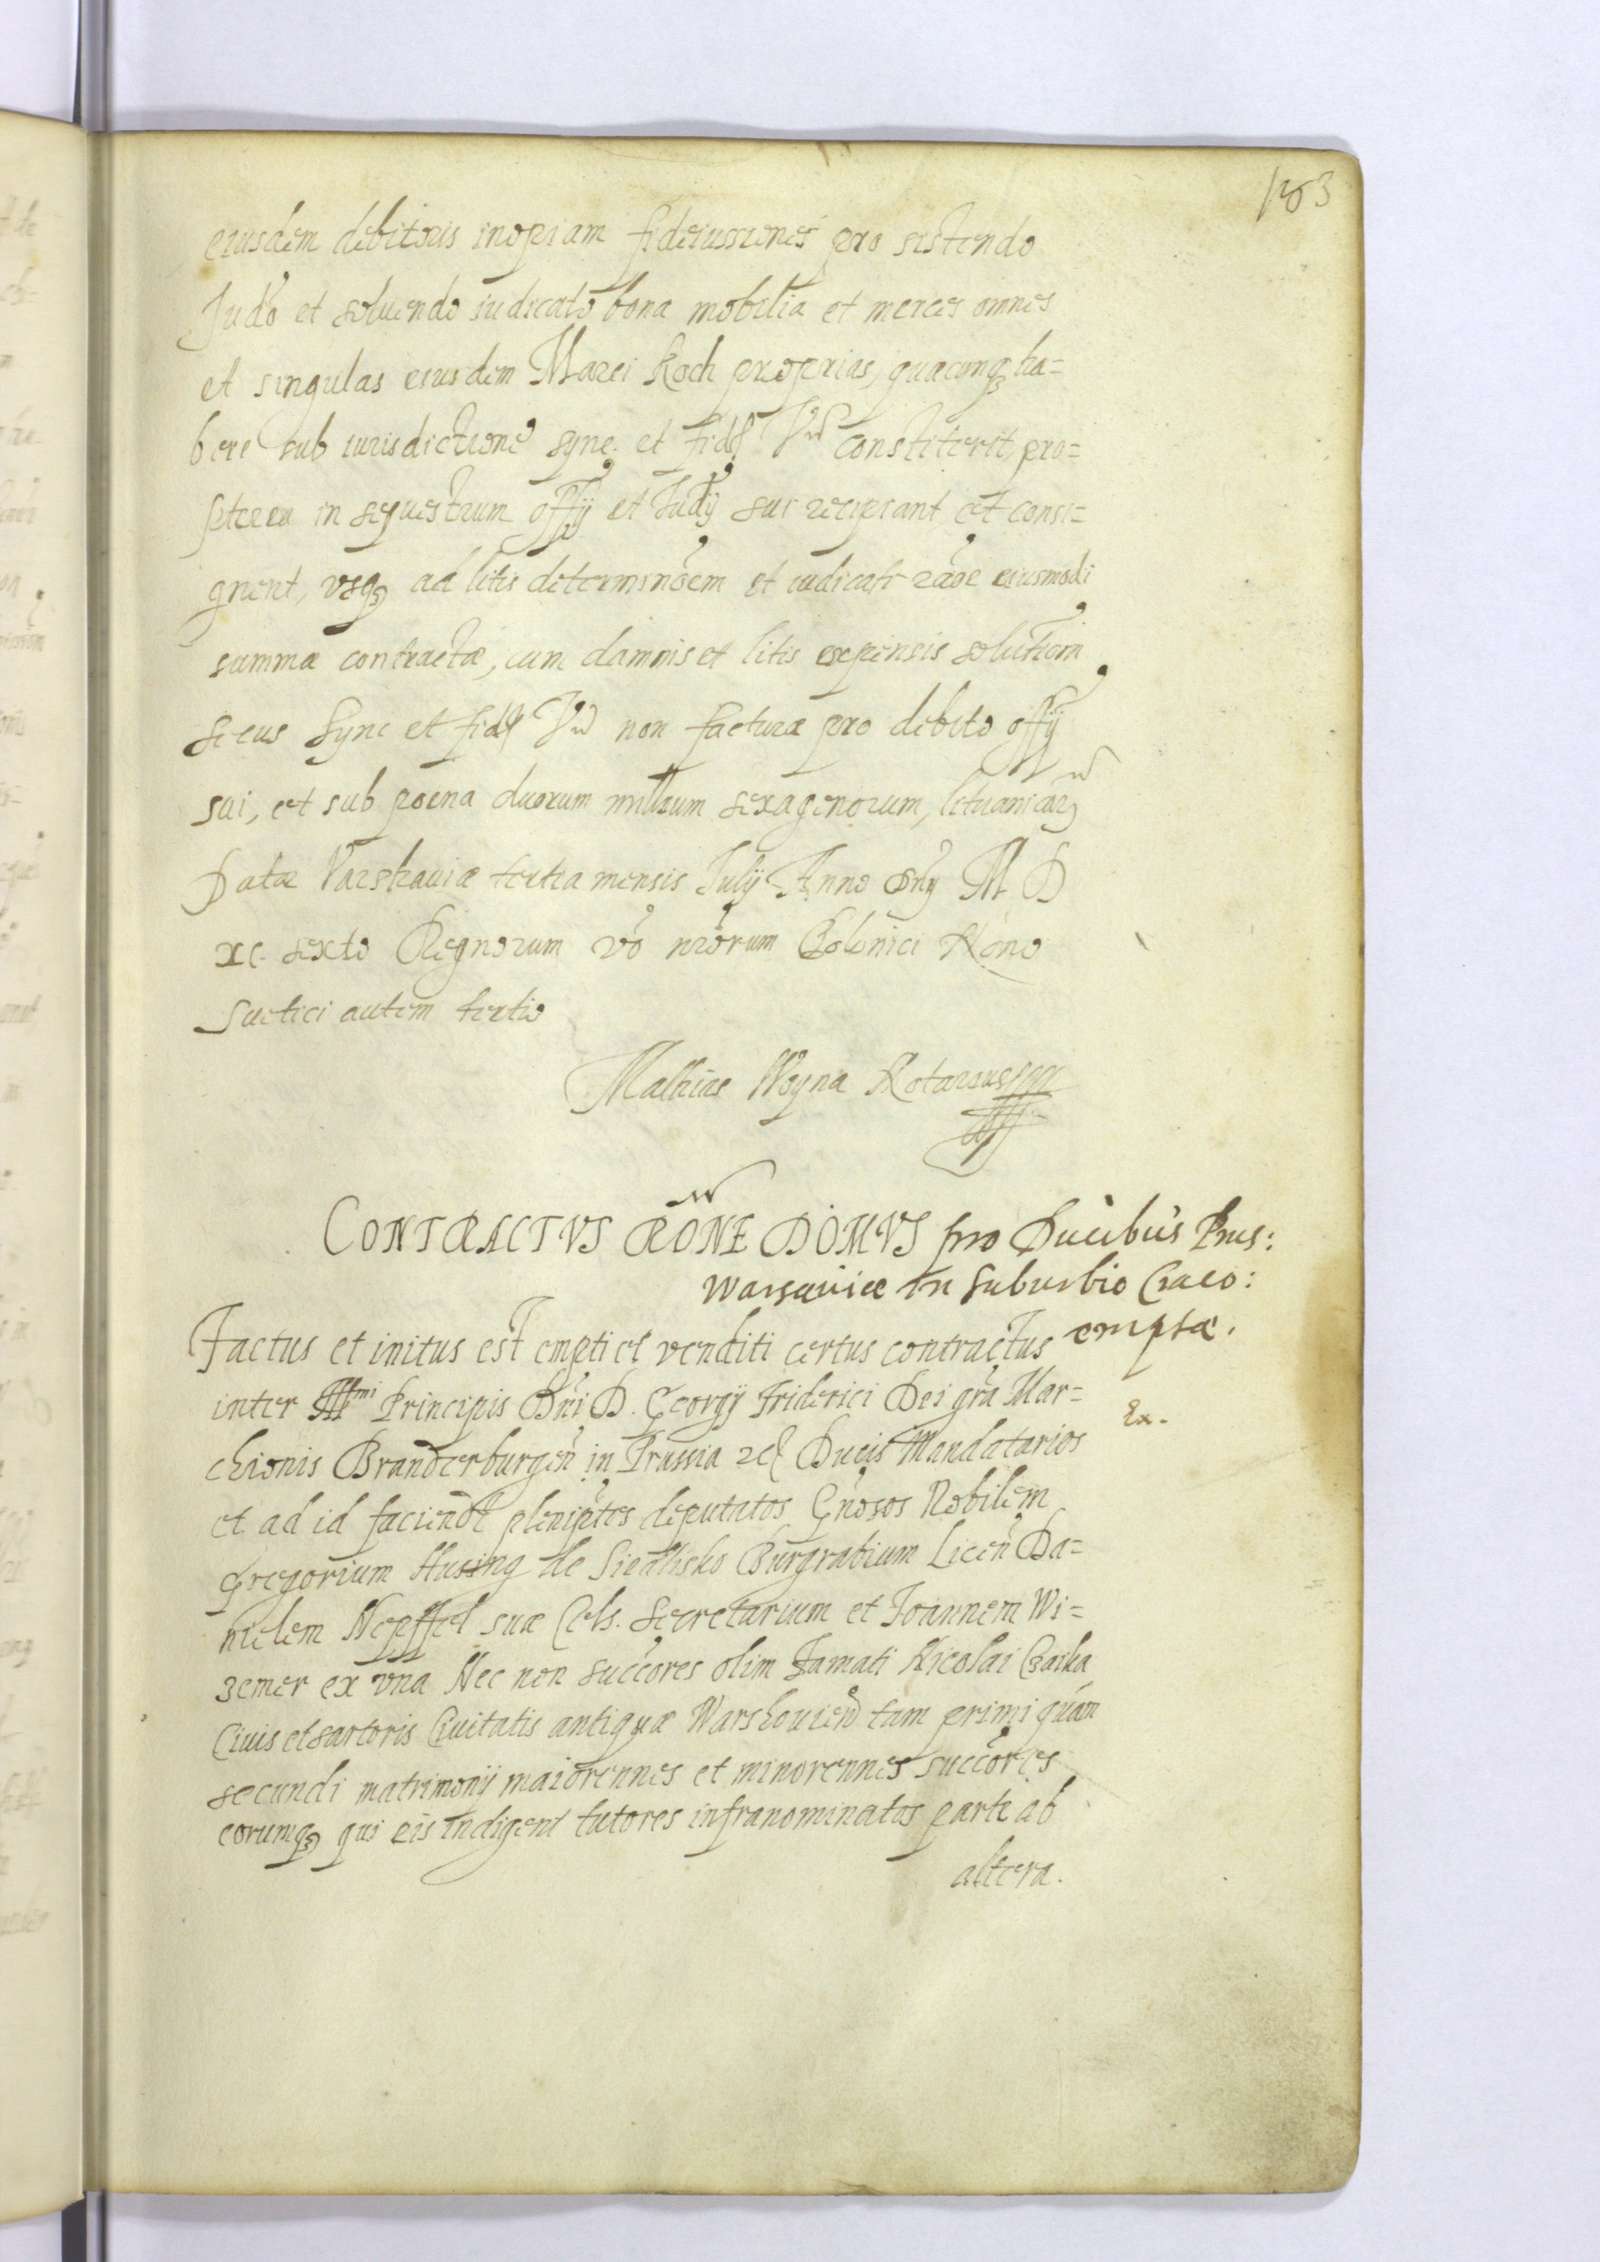 183
eiusdem debitoris inopiam fideiussiones pro sistendo
Judõ et soluendo iudicato bona mobilia et merces omnes
et singulas eiusdem Marci Koch proprias, quacunqȝ ha=
bere sub iurisdictione Sync. et Fid. Vr̃ constiterit, pro=
pterea in sequestrum offÿ et Judÿ sui recipiant et consi=
gnent, vsqȝ ad litis determinõem et iudicati rãõe eiusmodi
summæ contractæ, cum damnis et litis expensis solutiom
secus Sync et Fid. Vr̃ non facturæ pro debito offÿ
sui, et sub poena duorum millium sexagenorum, lituanicarȝ
Datæ Varshauiæ tertia mensis Julÿ Anno Dnÿ M D
xc. sexto Regnorum võ nrõrum Polonici Nono
Suetici autem tertio
Mathias Woyna Notarius
CONTRACTVS RÕNE DOMVS pro Ducibus Prus:
Warsauiæ in Suburbio Craco:
emptæ.
Factus et initus est empti et venditi certus contractus
inter Illmi Principis Dñi D. Georgÿ Friderici Dei grã Mar=
Ex.
chionis Branderburgeñ in Prussia Ducis Mandatarios
et ad id faciend plenipõtes deputatos Gñosos Nobilem
Gregorium Husing de Siedlisko Burgrabium Liceñ Da=
nielem Nepffel suæ Cels. Secretarium et Joannem Wi=
zemer ex vna Nec non succores olim Famati Nicolai Czaika
Ciuis et sartoris Ciuitatis antiquæ Warshouieñ tam primi quàm
secundi matrimonÿ maiorennes et minorennes succores
eorumqȝ qui eis indigent tutores infranominatos parte ab
altera.